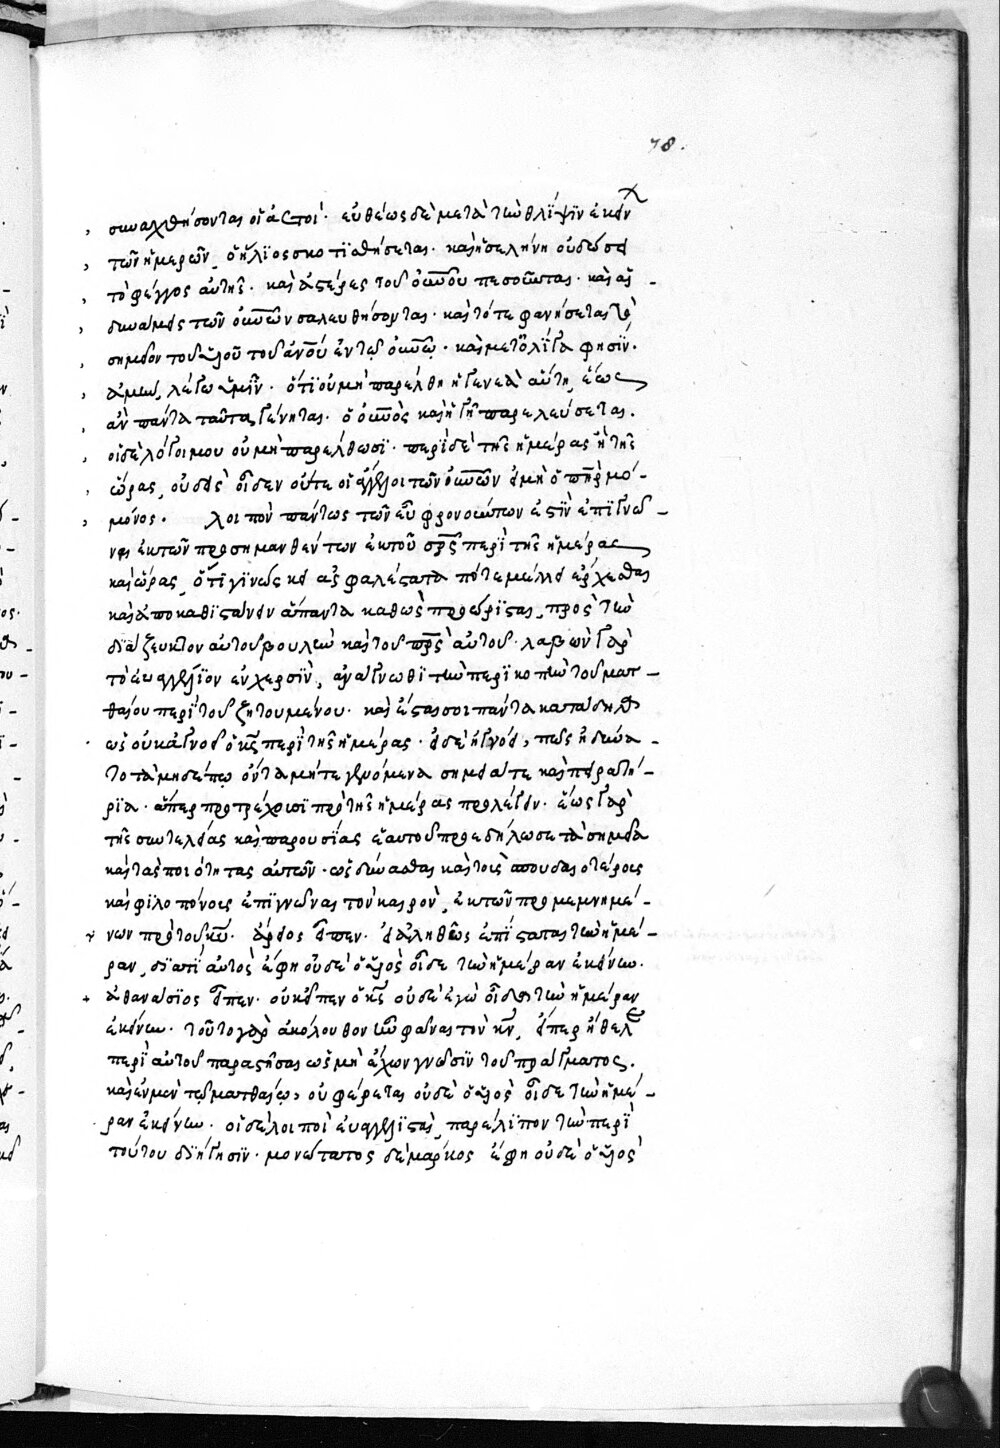 78.
συναχθήσονται οἱ ἀετοί· εὐθέως δὲ μετὰ τὴν θλίψϊν ἐκείν
τῶν ἡμερῶν, ὁ ἥλϊος σκοτϊσθήσεται· καὶ ἡ σελήνη οὐ δώσει
τὸ φέγγος αὐτῆς· καὶ ἀστέρες τοῦ οὐνοῦ πεσοῦνται· καὶ αἱ -
δυνάμεις τῶν οὐνῶν σαλευθήσονται· καὶ τότε φανήσεται τὸ
σημεῖον τοῦ υἱοῦ τοῦ ἀνοῦ ἐν τῷ οὐνῷ· καὶ μετ' ὀλίγα φησΐν·
ἀμὴν, λέγω ὑμῖν· ὅτϊ οὐ μὴ παρέλθη ἡ γενεὰ αὕτη, ἕως
ἂν πάντα ταῦτα γένηται· ὁ οὐνὸς καὶ ἡ γῆ παρελεύσεται.
οἱ δὲ λόγοι μου οὐ μὴ παρέλθωσϊ· περὶ δὲ τῆς ἡμέρας ἢ τῆς
ὥρας, οὐδεὶς οἶδεν οὔτε οἱ ἄγγελοι τῶν οὐνῶν εἰ μὴ ὁ πὴρ μό -
μόνος· λοιπὸν πάντως τῶν εὖ φρονούντων ἐστῒν ἐπϊγνῶ -
ναι ἐκ τῶν προσημανθέντων ἐκ τοῦ σρς περὶ τῆς ἡμέρας
καὶ ὥρας, ὅτϊ γϊνώσκει ἀσφαλέστατα πότε μέλλει ἔρχεσθαι
καὶ ἀποκαθϊστάνειν ἅπαντα καθὼς προώρϊσται, πρὸς τὴν
ἀὐτοῦ βουλὴν καὶ τοῦ πρς αὐτοῦ· λαβὼν γὰρ
τὸ εὐαγγέλϊον ἐν χερσῒν, ἀνάγνωθϊ τὴν περϊκοπὴν τοῦ ματ -
θαίου περὶ τοῦ ζητουμένου· καὶ ἔσται σοι πάντα κατάδηλα
ὡς οὐκ ἀγνοεῖ ὁ κς περὶ τῆς ἡμέρας· εἰ δὲ ἠγνόει, πῶς ἠδύνα -
το τὰ μηδέπω ὄντα μήτε γενόμενα σημεῖά τε καὶ πειρατή -
ρϊα· ἅπερ προτρέχουσϊ πρὸ τῆς ἡμέρας προλέγειν· ἕως γὰρ
τῆς συντελείας καὶ παρουσίας ἑαυτοῦ προεδήλωσε τὰ σημεῖα
καὶ τὰς ποιότητας αὐτῶν· ὡς δύνασθαι καὶ τοῖς σπουδαιοτέροις
καὶ φϊλοπόνοις ἐπϊγνῶναι τὸν καιρὸν, ἐκ τῶν προμεμνημέ -
νων πρὸ τοῦ κυ. ἄρειος εἶπεν· εἰ ἀληθῶς ἐπίσταται τὴν ἡμέ -
ραν, δϊατῒ αὐτὸς ἔφη οὐδὲ ὁ υἱὸς οἶδε τὴν ἡμέραν ἐκείνην.
ἀθανάσϊος εἶπεν· οὐκ εἶπεν ὁ κς οὐδὲ ἐγὼ οἶδα τὴν ἡμέραν
ἐκείνην· τοῦτο γὰρ ἀκόλουθον ἦν φᾶναι τὸν κν, εἴπερ ἤθελε
περὶ αὐτοῦ παραστῆσαι ὡς μὴ ἔχων γνῶσϊν τοῦ πράγματος.
καὶ ἐν μὲν τῷ ματθαίῳ, οὐ φέρεται οὐδὲ ὁ υἱὸς οἶδε τὴν ἡμέ -
ραν ἐκείνην· οἱ δὲ λοιποὶ εὐαγγελϊσταὶ παρέλϊπον τὴν περὶ
τούτου δϊήγησϊν· μονώτατος δὲ μάρκος ἔφη οὐδὲ ὁ υἱὸς